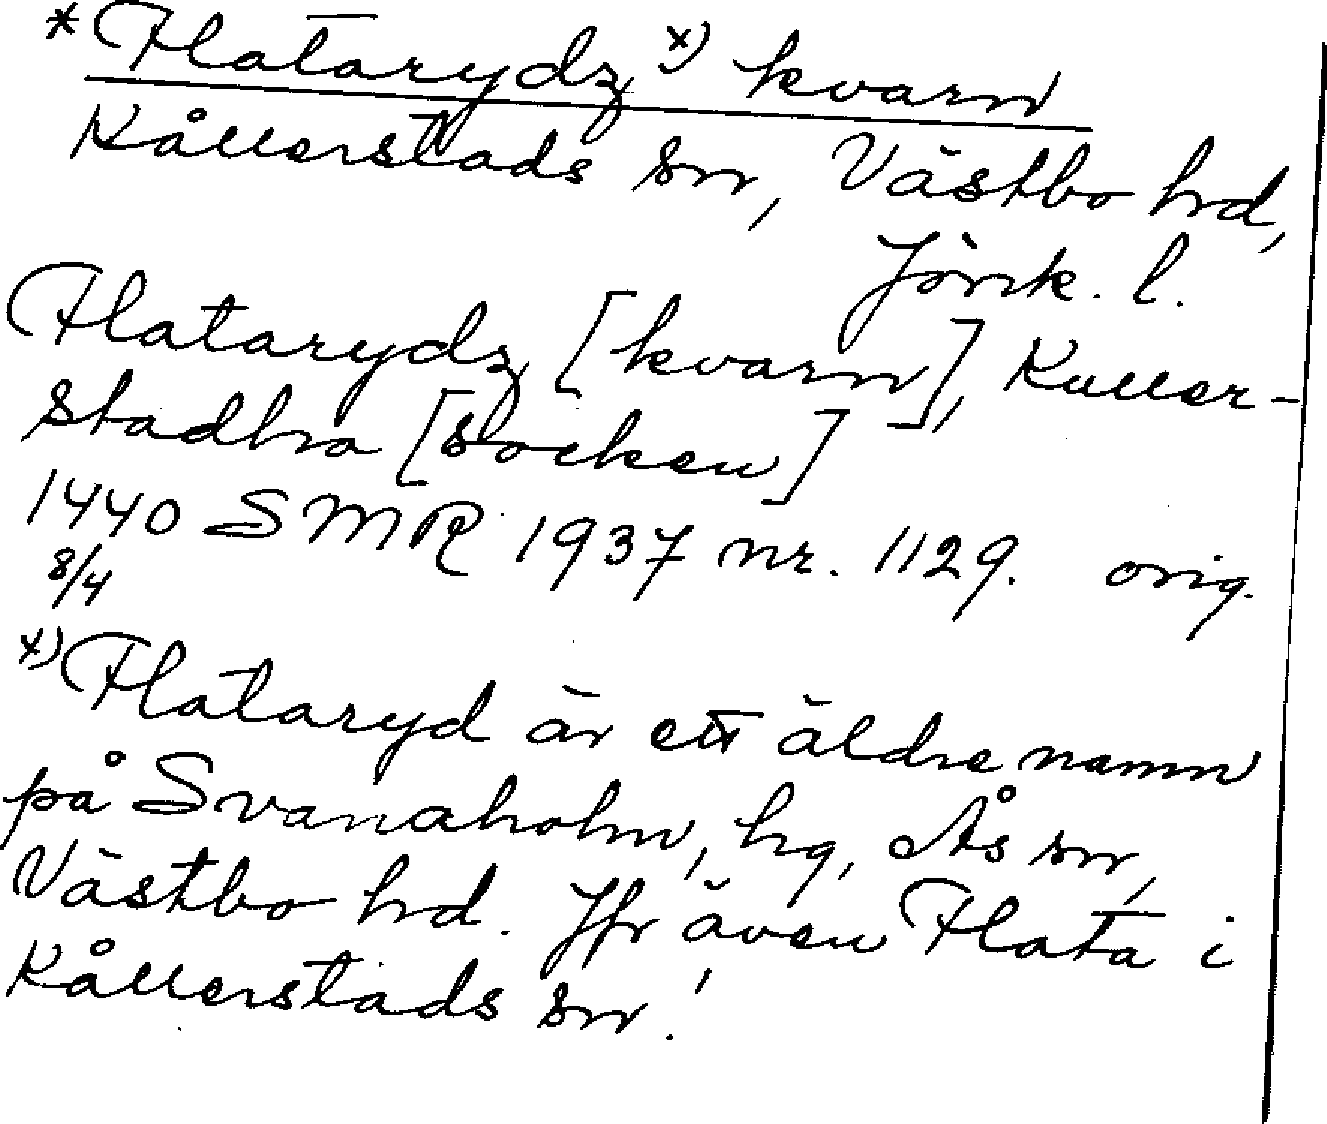 * Flatarydz x) kvarn
Kållerstads sn, Västbo hd,
Jönk. l.
Flatarydz [kvarn], Kuller-
stadhra [socken]
1440 SMR 1937 nr. 1129. orig.
8/4
x) Flataryd är ett äldre namn
på Svanaholm, hg, Ås sn,
Västbo hd. Jfr även Flata i
Kållerstads sn.